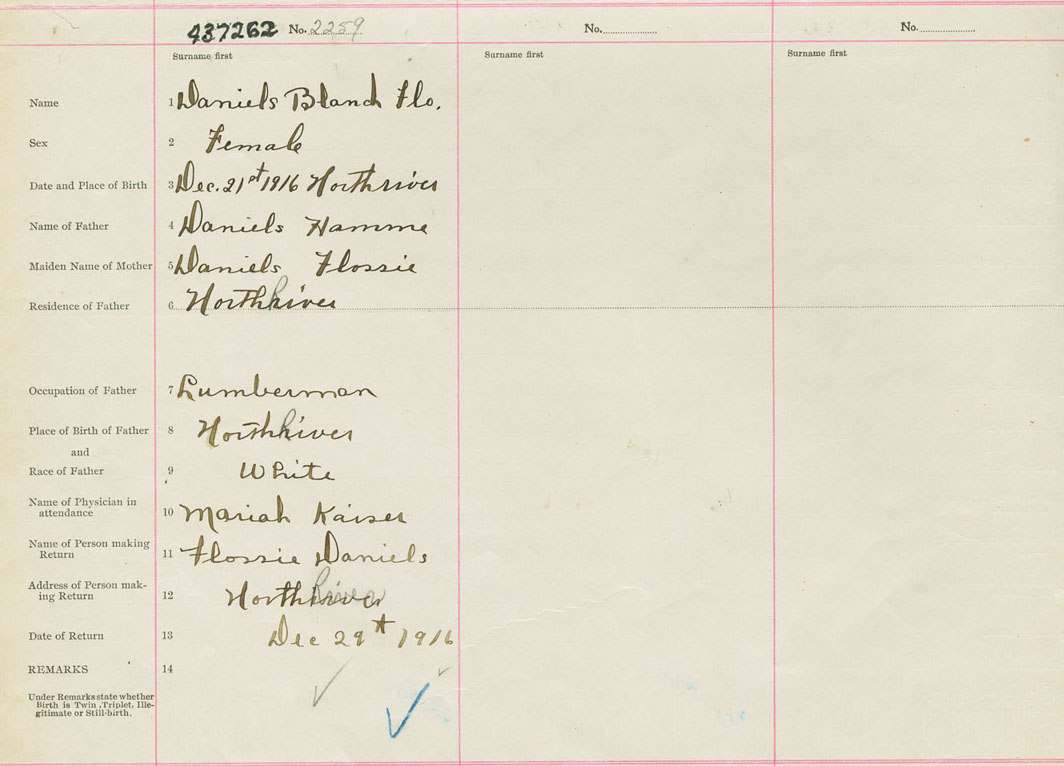 437262 No. 2259 No. No.
Surname first Surname first Surname first
Name 1 Daniels Bland Flo.
Sex 2 Female
Date and Place of Birth 3 Dec. 21st 1916 Northriver
Name of Father 4 Daniels Hamme
Maiden Name of Mother 5 Daniels Flossie
Residence of Father 6 NorthRiver
Occupation of Father 7 Lumberman
Place of Birth of Father 8 NorthRiver
and
Race of Father 9 White
Name of Physician in
attendance 10 Mariah Kaiser
Name of Person making
Return 11 Flossie Daniels
Address of Person mak-
ing Return 12 North River
Date of Return 13 Dec 29st 1916
REMARKS 14
Under Remarks state whether
Birth is Twin, Triplet, Ille-
gitimate or Still-birth.